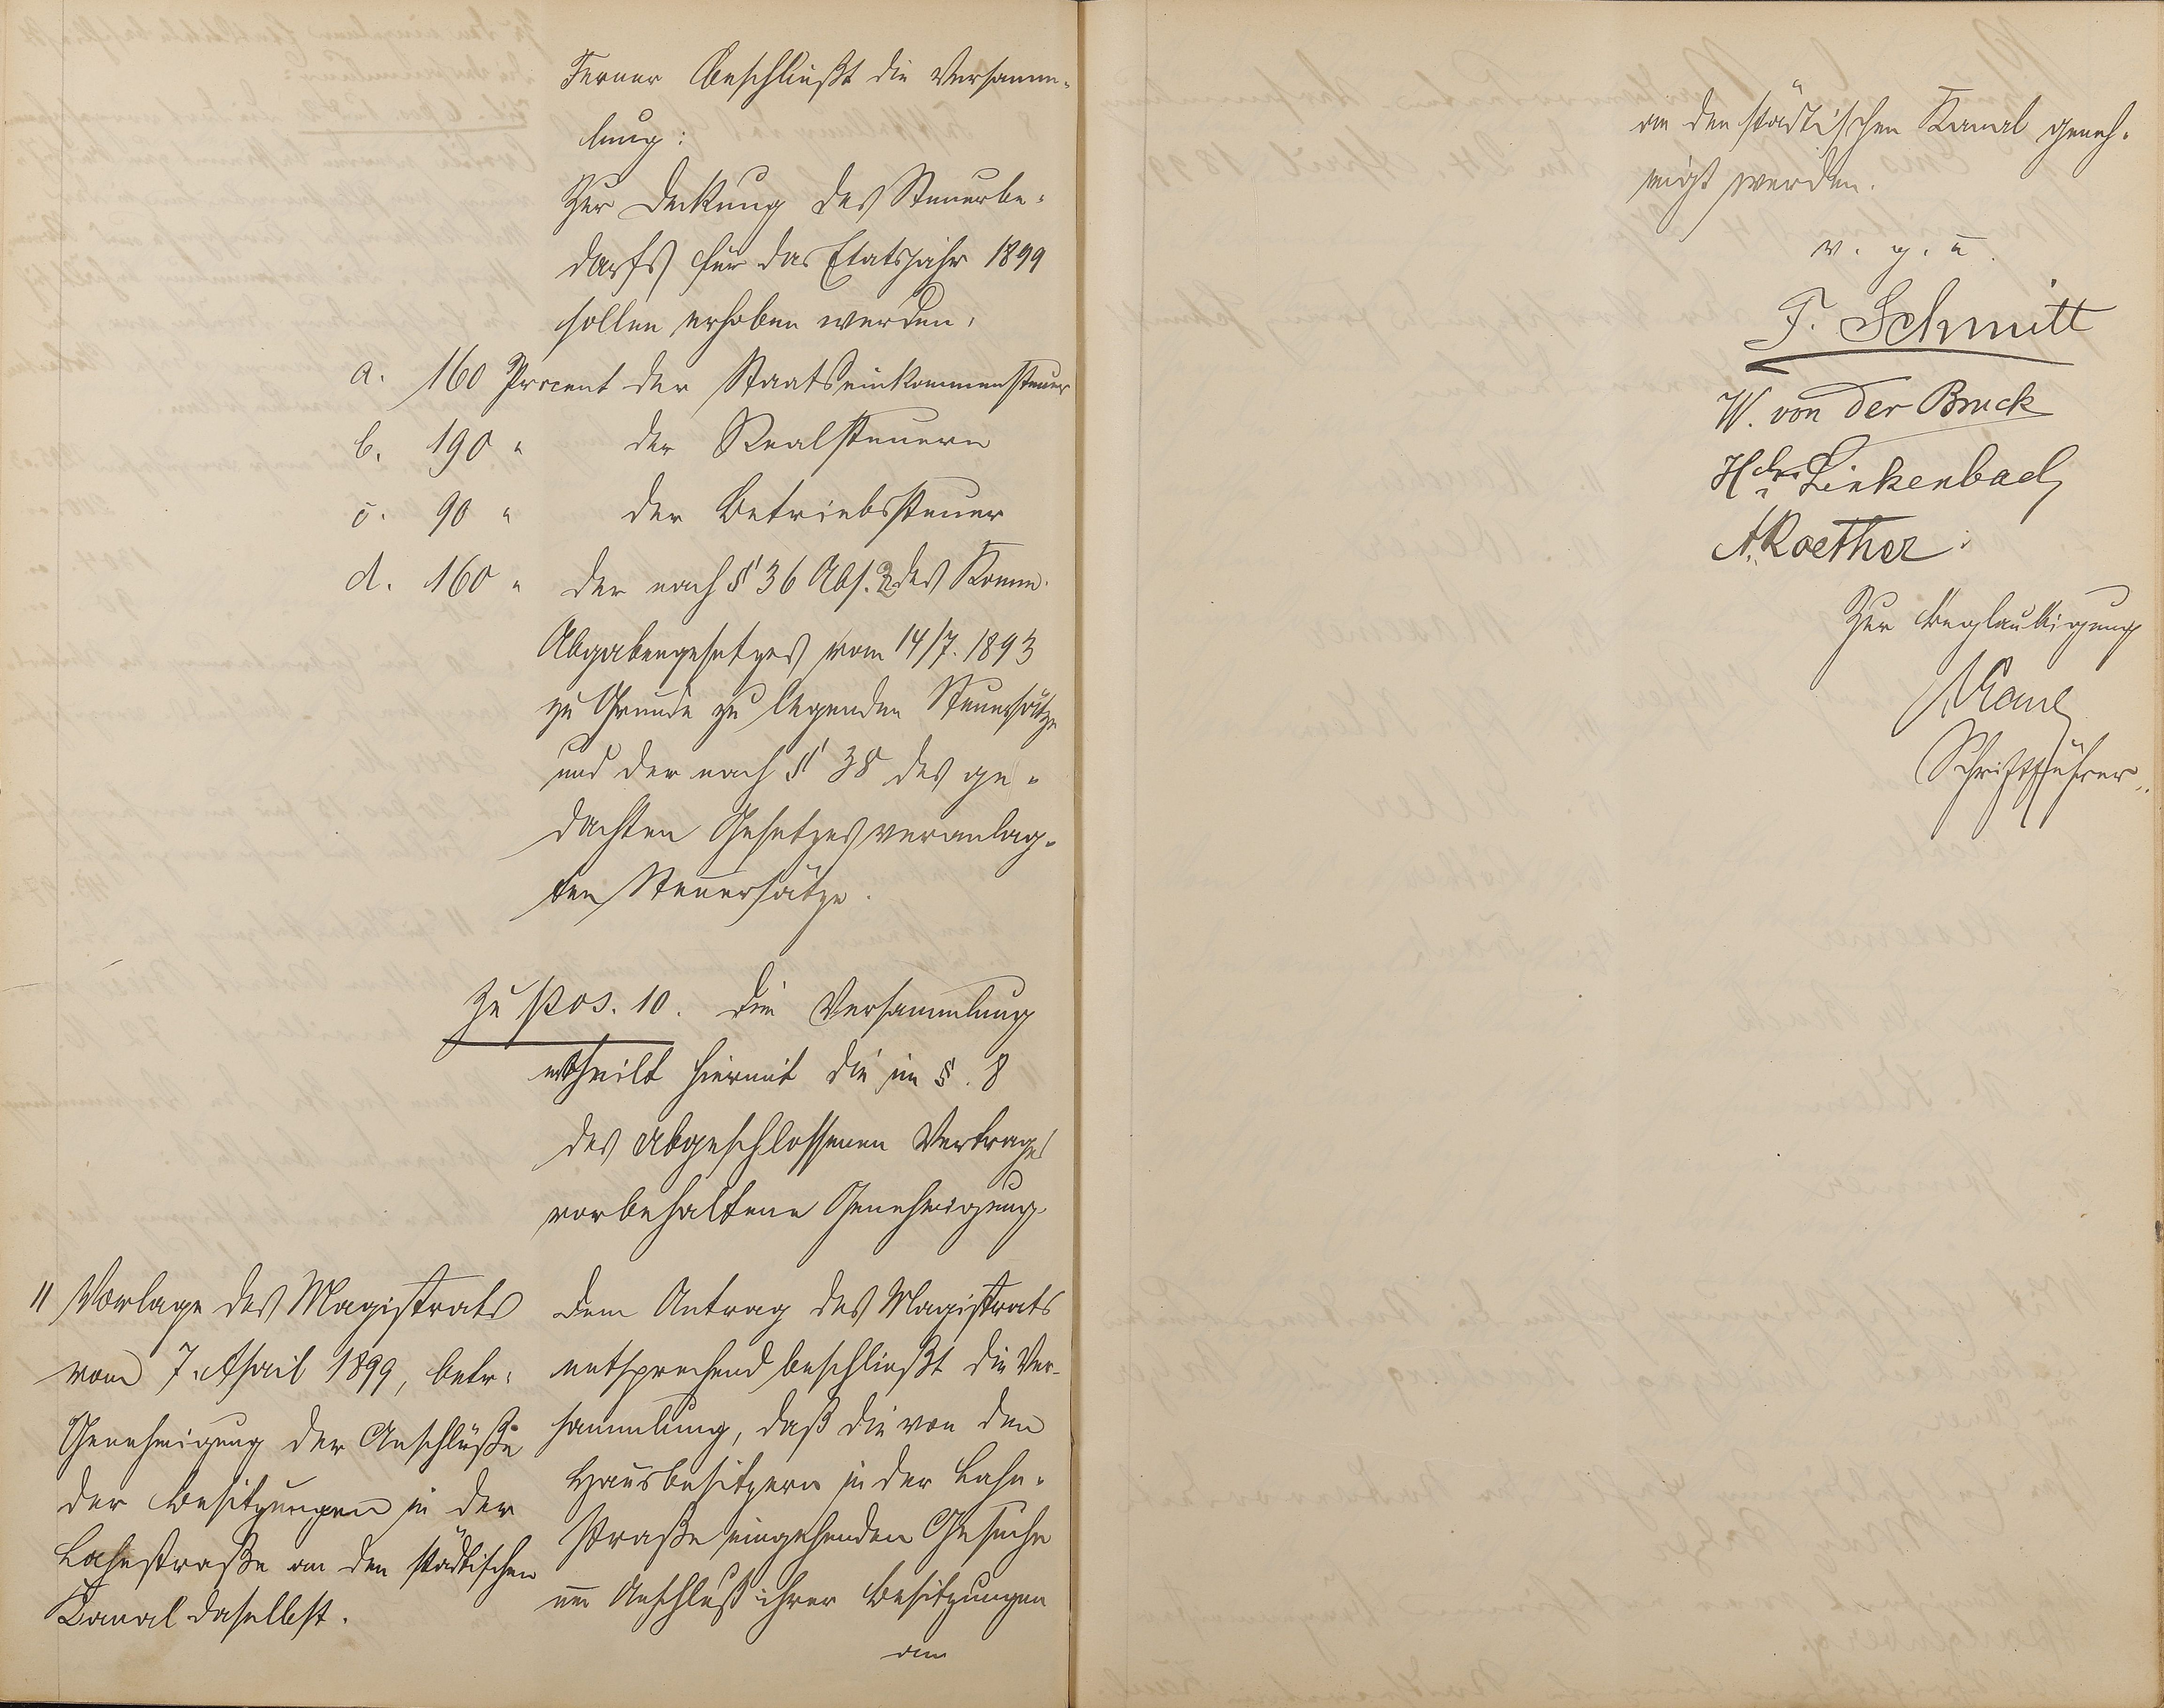 Ferner beschließt die Versamm-
lung:
Zur Deckung des Steuerbe-
darfs für das Etatsjahr 1899
sollen erhoben werden:
a. 160 Procent der Staatseinkommensteuer
b. 190 " der Realsteuern
c. 90 " der Betriebssteuer
d. 160 " der nach § 36 Abs. 2 des Komm.
Abgabengesetzes vom 14/7. 1893
zu Grunde zu legenden Steuersätze
und der nach § 38 des ge-
dachten Gesetzes veranlag-
ten Steuersätze.
Zu Pos. 10. Die Versammlung
ertheilt hiermit die im §. 8
des abgeschlossenen Vertrages
vorbehaltene Genehmigung.
11 Vorlage des Magistrats
vom 7. April 1899, betr.
Genehmigung der Anschlüße
der Besitzungen in der
Lahnstraße an den städtischen
Kanal daselbst.
Dem Antrag des Magistrats
entsprechend beschließt die Ver-
sammlung, daß die von den
Hausbesitzern in der Lahn-
straße eingehenden Gesuche
um Anschluß ihrer Besitzungen
an
an den städtischen Kanal geneh-
migt werden.
v. g. u.
F. Schmitt
W. von der Bruck
Hch. Linkenbach
A. Roether
Zur Beglaubigung
Schriftführer.